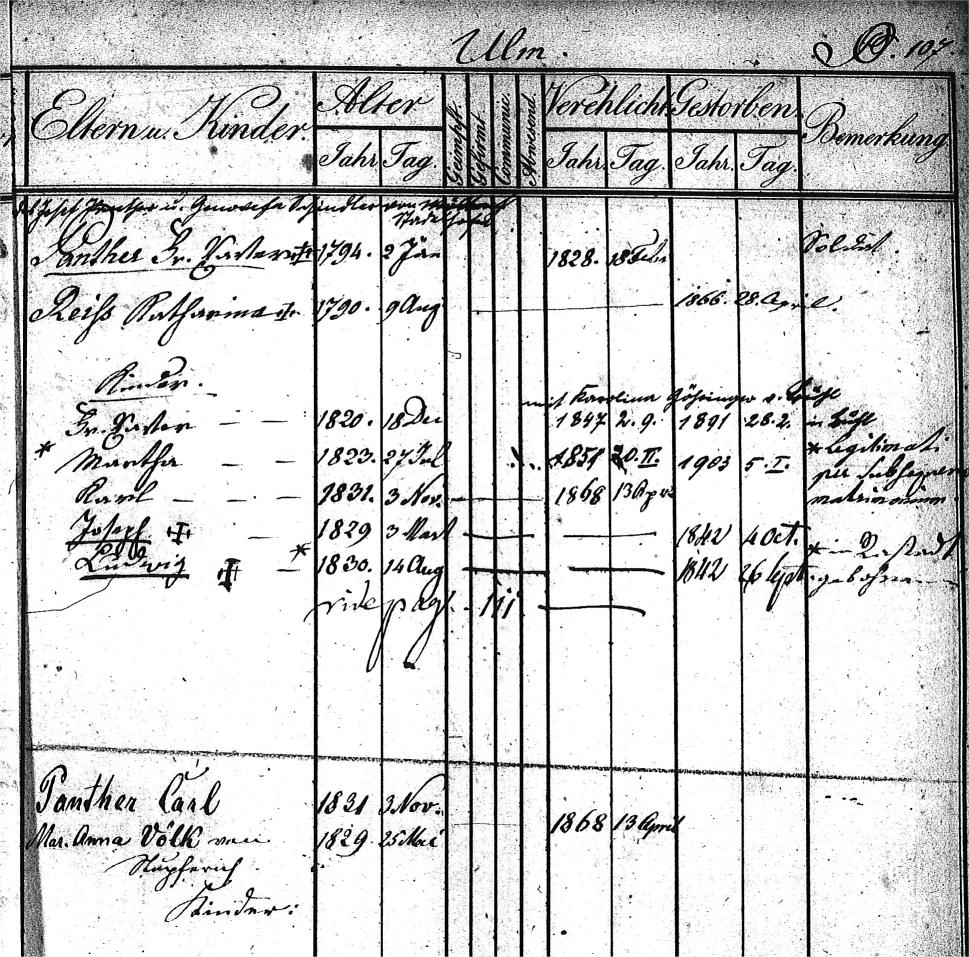 Ulm.
P. 107.
Eltern u. Kinder. Alter Geimpft. Gefirmt. Communic. Anwesend. Verehlicht. Gestorben. Bemerkung.
Jahr. Tag. Jahr. Tag. Jahr. Tag.
Josef Panther u. Genovefa Schindler von
Stadelhofen
Panther Fr. Xaver 1794. 2 Jän 1828. 18 Febr Soldat.
Reiss Katharina 1790. 9 Aug 1866. 28. April.
Kinder.
mit Karolina Göhringer v. Buhl
Fr. Xaver — — 1820. 18 Dec 1847 2. 9. 1891 28. 2. in Buhl
* Martha — — 1823. 27 Jul 1851 20. II. 1903 5. I. * legitimati
per subsequens
Karl — — — 1831. 3 Nov. 1868 13 Apr. matrimonium.
Joseph — 1829 3 Mart 1842 4 Oct. * in Rastadt
Ludwig — * 1830. 14 Aug 1842 26 Sept. gebohren
vide pag. 111
Panther Carl 1831 3 Nov. 1868 13 April
Mar. Anna Völk von 1829 25 Mai
Stupferich
Kinder: